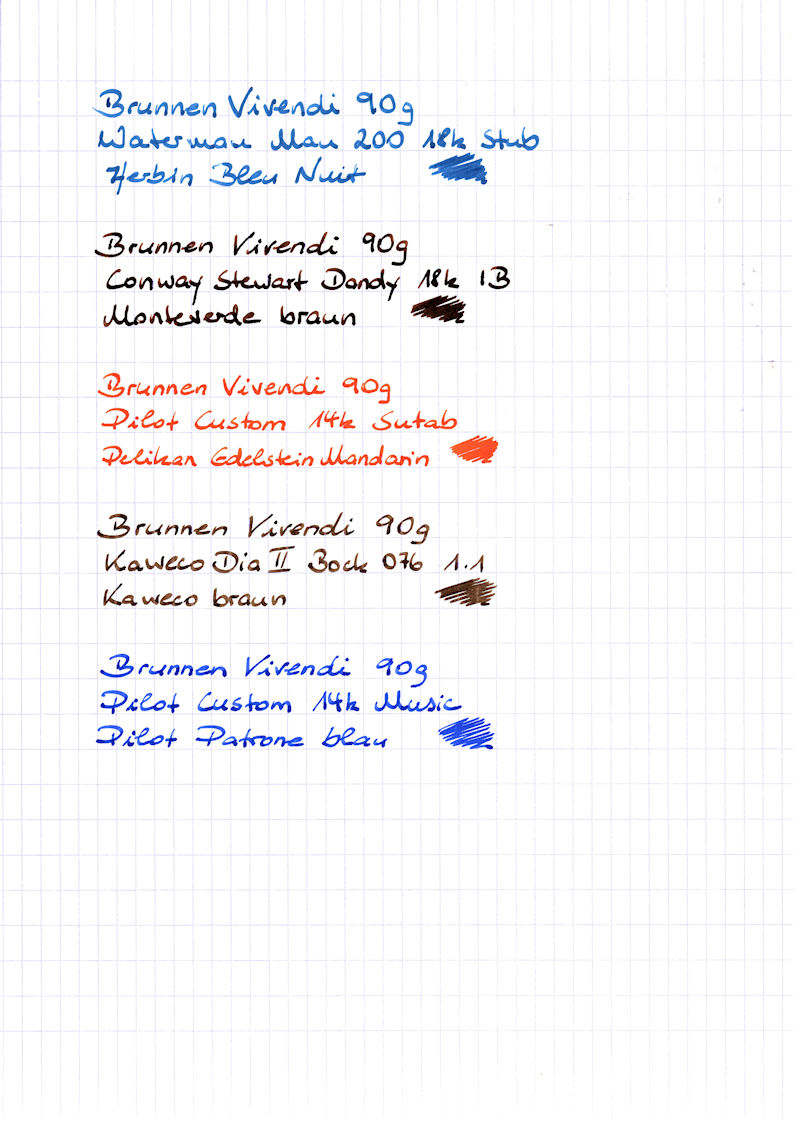 Brunnen Vivendi 90g
Waterman Man 200 18k Stub
Herbin Bleu Nuit
Brunnen Vivendi 90g
Conway Stewart Dandy 18k IB
Monteverde braun
Brunnen Vivendi 90g
Pilot Custom 14k Sutab
Pelikan Edelstein Mandarin
Brunnen Vivendi 90g
Kaweco Dia II Bock 076 1.1
Kaweco braun
Brunnen Vivendi 90g
Pilot Custom 14k Music
Pilot Patrone blau